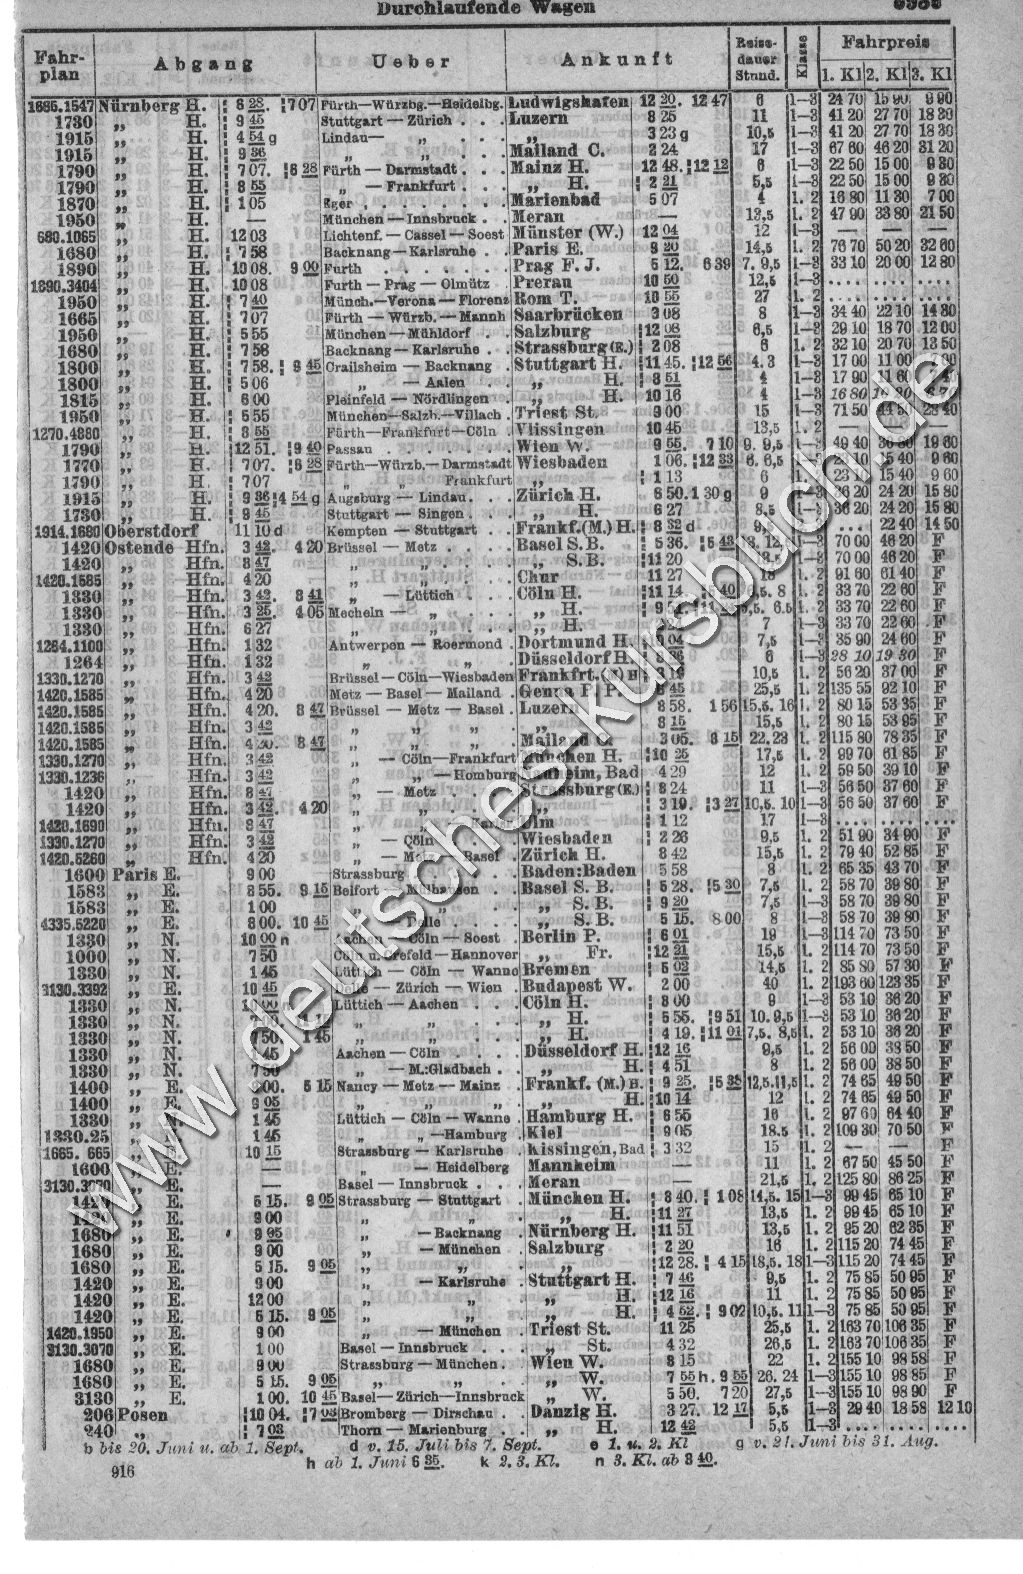 Durchlaufende Wagen
Fahr-plan Abgang Ueber Ankunft Reise-dauer Stund. Klasse Fahrpreis
1. Kl 2. Kl 3. Kl
1685.1547 Nürnberg H. 8 28. 7 07 Fürth—Würzbg.—Heidelbg. Ludwigshafen 12 20. 12 47 6 1—3 24 70 15 90 9 90
1730 „ H. 9 45 Stuttgart — Zürich . . . Luzern 8 25 11 1—3 41 20 27 70 18 30
1915 „ H. 4 54 g Lindau— „ . . . „ 3 23 g 10,5 1—3 41 20 27 70 18 30
1915 „ H. 9 36 „ „ . . . Mailand C. 2 24 17 1—3 67 60 46 20 31 20
1790 „ H. 7 07. 8 28 Fürth — Darmstadt . . . Mainz H. 12 48. 12 12 6 1—3 22 50 15 00 9 30
1790 „ H. 8 55 „ — Frankfurt . . . „ H. 2 21 5,5 1—3 22 50 15 00 9 30
1870 „ H. 1 05 Eger . . . Marienbad 5 07 4 1. 2 16 80 11 30 7 00
1950 „ H. — München — Innsbruck . . Meran — 13,5 1—3 47 90 33 80 21 50
680.1065 „ H. 12 03 Lichtenf. — Cassel — Soest Münster (W.) 12 04 12 1—3 — — —
1680 „ H. 7 58 Backnang — Karlsruhe . . Paris E. 9 20 14,5 1. 2 76 70 50 20 32 60
1890 „ H. 10 08. 9 00 Furth . . . Prag F. J. 5 12. 6 39 7. 9,5 1—3 33 10 20 00 12 80
1890.3404 „ H. 10 08 Furth — Prag — Olmütz . Prerau 10 50 12,5 1—3 . . . .
1950 „ H. 7 40 Münch.—Verona — Florenz Rom T. 10 55 27 1. 2 . . . .
1665 „ H. 7 07 Fürth — Würzb. — Mannh Saarbrücken 3 08 8 1—3 34 40 22 10 14 80
1950 „ H. 5 55 München — Mühldorf . . Salzburg 12 08 6,5 1—3 29 10 18 70 12 00
1680 „ H. 7 58 Backnang — Karlsruhe . . Strassburg (E.) 2 08 6 1. 2 32 10 20 70 13 50
1800 „ H. 7 58. 9 45 Crailsheim — Backnang . Stuttgart H. 11 45. 12 56 4. 3 1—3 17 00 11 00
1800 „ H. 5 06 „ — Aalen „ H. 8 51 4 1—3 17 90 11 60
1815 „ H. 6 00 Pleinfeld — Nördlingen . „ H. 10 16 4 1—3 16 80
1950 „ H. 5 55 München—Salzb.—Villach . Triest St. 9 00 15 1—3 71 50
1270.4880 „ H. 8 55 Fürth—Frankfurt—Cöln . Vlissingen 10 45 13,5 1. 2 — — —
1790 „ H. 12 51. 9 40 Passau . . . Wien W. 9 55. 7 10 9. 9,5 49 40 19 60
1770 „ H. 7 07. 8 28 Fürth—Würzb.—Darmstadt Wiesbaden 1 06. 12 33 6. 6,5 15 40 9 60
1790 „ H. 7 07 „ Frankfurt „ 1 13 6 15 40 9 60
1915 „ H. 9 36 4 54 g Augsburg — Lindau . . . Zürich H. 6 50. 1 30 g 9 36 20 24 20 15 80
1730 „ H. 9 45 Stuttgart — Singen . . „ H. 6 27 8,5 36 20 24 20 15 80
1914.1680 Oberstdorf 11 10 d Kempten — Stuttgart . . Frankf.(M.) H. 8 32 d 22 40 14 50
1420 Ostende Hfn. 3 42. 4 20 Brüssel — Metz . . . Basel S.B. 5 36. 5 43 70 00 46 20 F
1420 „ Hfn. 8 47 „ „ . . . „ S.B. 11 20 70 00 46 20 F
1420.1585 „ Hfn. 4 20 „ „ . . . Chur 11 27 1. 2 91 60 61 40 F
1330 „ Hfn. 3 42. 8 41 „ — Lüttich . . . Cöln H. 11 14. 8 1. 2 33 70 22 60 F
1330 „ Hfn. 3 25. 4 05 Mecheln — „ . . . „ H. 6.5 1—3 33 70 22 60 F
1330 „ Hfn. 6 27 „ „ . . . „ H. 7 1—3 33 70 22 60 F
1284.1100 „ Hfn. 1 32 Antwerpen — Roermond . Dortmund H. 7,5 1—3 35 90 24 60 F
1264 „ Hfn. 1 32 „ „ . Düsseldorf H. 6 1—3 28 10 19 30 F
1330.1270 „ Hfn. 3 42 Brüssel—Cöln—Wiesbaden 10,5 1. 2 56 20 37 00 F
1420.1585 „ Hfn. 4 20 Metz — Basel — Mailand . Genua P. P. 25,5 1. 2 135 55 92 10 F
1420.1585 „ Hfn. 4 20. 8 47 Brüssel — Metz — Basel . Luzern 8 58. 1 56 15,5. 16 1. 2 80 15 53 35 F
1420.1585 „ Hfn. 3 42 „ „ „ „ 8 15 15,5 1. 2 80 15 53 95 F
1420.1585 „ Hfn. 4 20. 8 47 „ „ „ Mailand 3 06. 8 15 22. 23 1. 2 115 80 78 35 F
1330.1270 „ Hfn. 3 42 „ — Cöln—Frankfurt München H. 10 25 17,5 1. 2 99 70 61 85 F
1330.1236 „ Hfn. 3 42 „ „ — Homburg Nauheim, Bad 4 29 12 1. 2 59 50 39 10 F
1420 „ Hfn. 8 47 „ — Metz . . Strassburg (E.) 8 24 11 1—3 56 50 37 60 F
1420 „ Hfn. 3 42. 4 20 „ „ 3 19. 3 27 10,5. 10 1—3 56 50 37 60 F
1420.1690 „ Hfn. 8 47 Ulm 1 12 17 1—3 . . . .
1330.1270 „ Hfn. 3 42 „ — Cöln Wiesbaden 2 26 9,5 1. 2 51 90 34 90 F
1420.5260 „ Hfn. 4 20 „ — Metz — Basel . Zürich H. 8 42 15,5 1. 2 79 40 52 85 F
1600 Paris E. 9 00 Strassburg Baden:Baden 5 58 8 1. 2 65 35 43 70 F
1583 „ E. 8 55. 9 15 Belfort — Mülhausen . . Basel S. B. 5 28. 5 30 7,5 1. 2 58 70 39 80 F
1583 „ E. 1 00 „ „ S. B. 9 20 7,5 1—3 58 70 39 80 F
4335.5220 „ E. 8 00. 10 45 „ — Delle . . „ S. B. 5 15. 8 00 8 1. 2 58 70 39 80 F
1330 „ N. 10 00 n Aachen — Cöln — Soest . Berlin P. 6 01 19 1—3 114 70 73 50 F
1000 „ N. 7 50 Cöln u. Crefeld — Hannover „ Fr. 12 21 15,5 1. 2 114 70 73 50 F
1330 „ N. 1 45 Lüttich — Cöln — Wanne Bremen 5 03 14,5 1. 2 85 80 57 30 F
3130.3392 „ E. 10 45 Delle — Zürich — Wien . Budapest W. 2 00 40 1. 2 193 60 123 35 F
1330 „ N. 10 00 n Lüttich — Aachen . . . Cöln H. 8 00 9 1—3 53 10 36 20 F
1330 „ N. „ „ „ H. 5 55. 9 51 10. 9,5 1—3 53 10 36 20 F
1330 „ N. 7 50. 1 45 „ „ „ H. 4 19. 11 01 7,5. 8,5 1. 2 53 10 36 20 F
1330 „ N. 1 45 Aachen — Cöln . . . Düsseldorf H. 12 16 9,5 1. 2 56 00 38 50 F
1330 „ N. 7 50 „ — M.:Gladbach . . „ H. 4 51 8 1. 2 56 00 38 50 F
1400 „ E. 5 15 Nancy — Metz — Mainz . Frankf. (M.) H. 9 25. 5 38 12,5.11,5 1. 2 74 65 49 50 F
1400 „ E. 9 05 „ „ „ „ H. 10 14 12 1. 2 74 65 49 50 F
1330 „ N. 1 45 Lüttich — Cöln — Wanne . Hamburg H. 6 55 16 1. 2 97 60 64 40 F
1330.25 „ N. 1 45 „ „ — Hamburg . Kiel 9 05 18.5 1. 2 109 30 70 50 F
1665. 665 „ E. 10 15 Strassburg — Karlsruhe . Kissingen, Bad 3 32 15 1. 2 — — F
1600 „ E. — „ — Heidelberg Mannheim — 11 1. 2 67 50 45 50 F
3130.3070 „ E. — Basel — Innsbruck . . . Meran — 21,5 1. 2 125 80 86 25 F
1420 „ E. 5 15. 9 05 Strassburg — Stuttgart . . München H. 8 40. 1 08 14,5. 15 1—3 99 45 65 10 F
„ E. 9 00 „ „ . . „ H. 11 27 13,5 1. 2 99 45 65 10 F
1680 „ E. „ — Backnang . Nürnberg H. 11 51 13,5 1. 2 95 20 62 35 F
1680 „ E. 9 00 „ — München . . Salzburg 2 20 16 1. 2 115 20 74 45 F
1680 „ E. 5 15. 9 05 „ „ „ 12 28. 4 15 18,5. 18 1—3 115 20 74 45 F
1420 „ E. 9 00 „ — Karlsruhe . Stuttgart H. 7 46 9,5 1. 2 75 85 50 95 F
1420 „ E. 12 00 „ „ „ H. 12 16 11 1. 2 75 85 50 95 F
1420 „ E. 5 15. 9 05 „ „ „ H. 4 52. 9 02 10,5. 11 1—3 75 85 50 95 F
1420.1950 „ E. 9 00 „ — München . Triest St. 11 25 25,5 1. 2 163 70 106 35 F
3130.3070 „ E. 1 00 Basel — Innsbruck . . . „ St. 4 32 26,5 1. 2 163 70 106 35 F
1680 „ E. 9 00 Strassburg — München . . Wien W. 8 15 22 1. 2 155 10 98 58 F
1680 „ E. 5 15. 9 05 „ „ „ W. 7 55 h. 9 55 26. 24 1—3 155 10 98 85 F
3130 „ E. 1 00. 10 45 Basel—Zürich—Innsbruck „ W. 5 50. 7 20 27,5 1—3 155 10 98 90 F
206 Posen 10 04. 7 03 Bromberg — Dirschau . . Danzig H. 3 27. 12 17 5,5 1—3 29 40 18 58 12 10
240 „ 7 03 Thorn — Marienburg . . „ H. 12 42 5,5 1—3 . . . .
b bis 20. Juni u. ab 1. Sept. d v. 15. Juli bis 7. Sept. e 1. u. 2. Kl g v. 21. Juni bis 31. Aug.
h ab 1. Juni 6 35. k 2. 3. Kl. n 3. Kl. ab 8 40.
916
www.deutsches-kursbuch.de